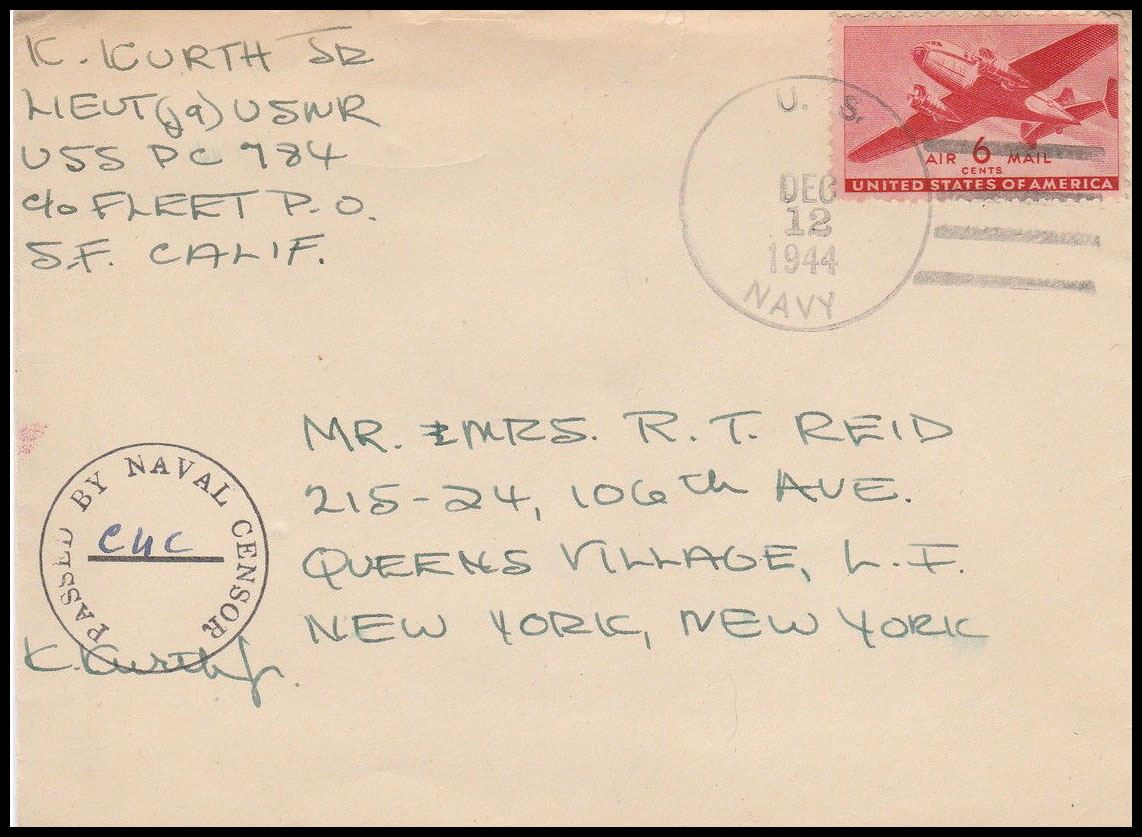 K. KURTH JR
LIEUT(jg) USNR
USS PC 784
c/o FLEET P.O.
S.F. CALIF.
U. S.
DEC
12
1944
NAVY
AIR 6 MAIL
CENTS
UNITED STATES OF AMERICA
MR. & MRS. R. T. REID
215-24, 106th AVE.
QUEENS VILLAGE, L.I.
NEW YORK, NEW YORK
PASSED BY NAVAL CENSOR
CHC
K. Kurth Jr.